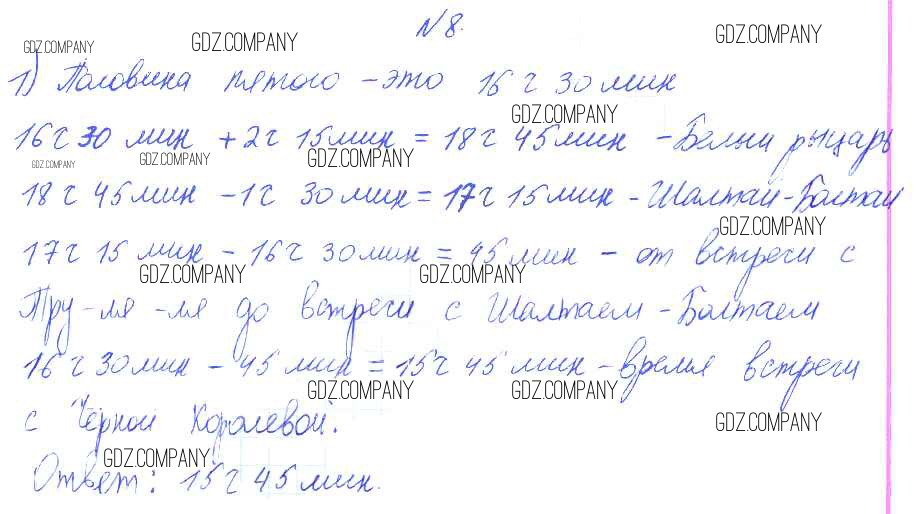 № 8.
1) Половина пятого – это 16 ч 30 мин
16 ч 30 мин + 2 ч 15 мин = 18 ч 45 мин – Белый рыцарь
18 ч 45 мин – 1 ч 30 мин = 17 ч 15 мин – Шалтай-Болтай
17 ч 15 мин – 16 ч 30 мин = 45 мин – от встречи с
Тру-ля-ля до встречи с Шалтаем-Болтаем
16 ч 30 мин – 45 мин = 15 ч 45 мин – время встречи
с Чёрной Королевой.
Ответ: 15 ч 45 мин.
GDZ.COMPANY
GDZ.COMPANY
GDZ.COMPANY
GDZ.COMPANY
GDZ.COMPANY
GDZ.COMPANY
GDZ.COMPANY
GDZ.COMPANY
GDZ.COMPANY
GDZ.COMPANY
GDZ.COMPANY
GDZ.COMPANY
GDZ.COMPANY
GDZ.COMPANY